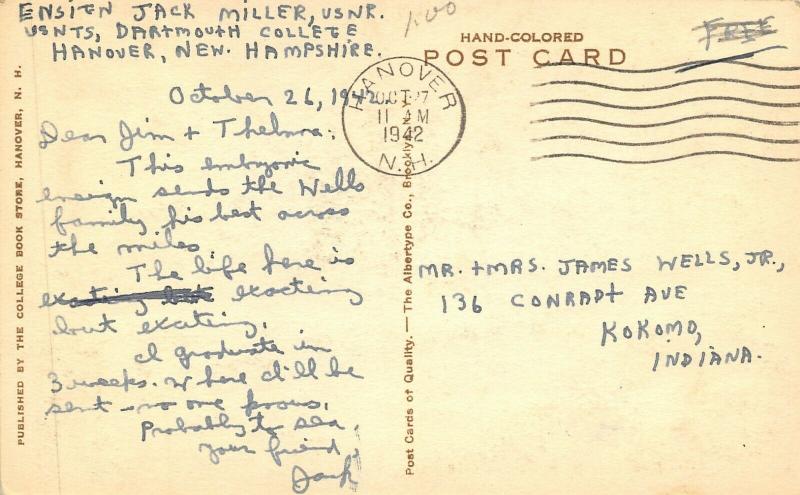 ENSIGN JACK MILLER, USNR.
USNTS, DARTMOUTH COLLEGE
HANOVER, NEW HAMPSHIRE.
1.00
HAND-COLORED
POST CARD
FREE
HANOVER
OCT 27
11 AM
1942
N.H.
October 26, 1942.
Dear Jim + Thelma:
This embryonic
ensign sends the Wells
family his best across
the miles
The life here is
exacting
but exciting.
I graduate in
3 weeks. Where I'll be
sent - no one knows.
Probably to sea.
Your friend,
Jack
MR. + MRS. JAMES WELLS, JR.,
136 CONRADT AVE
KOKOMO,
INDIANA.
PUBLISHED BY THE COLLEGE BOOK STORE, HANOVER, N. H.
Post Cards of Quality. — The Albertype Co., Brooklyn, N.Y.